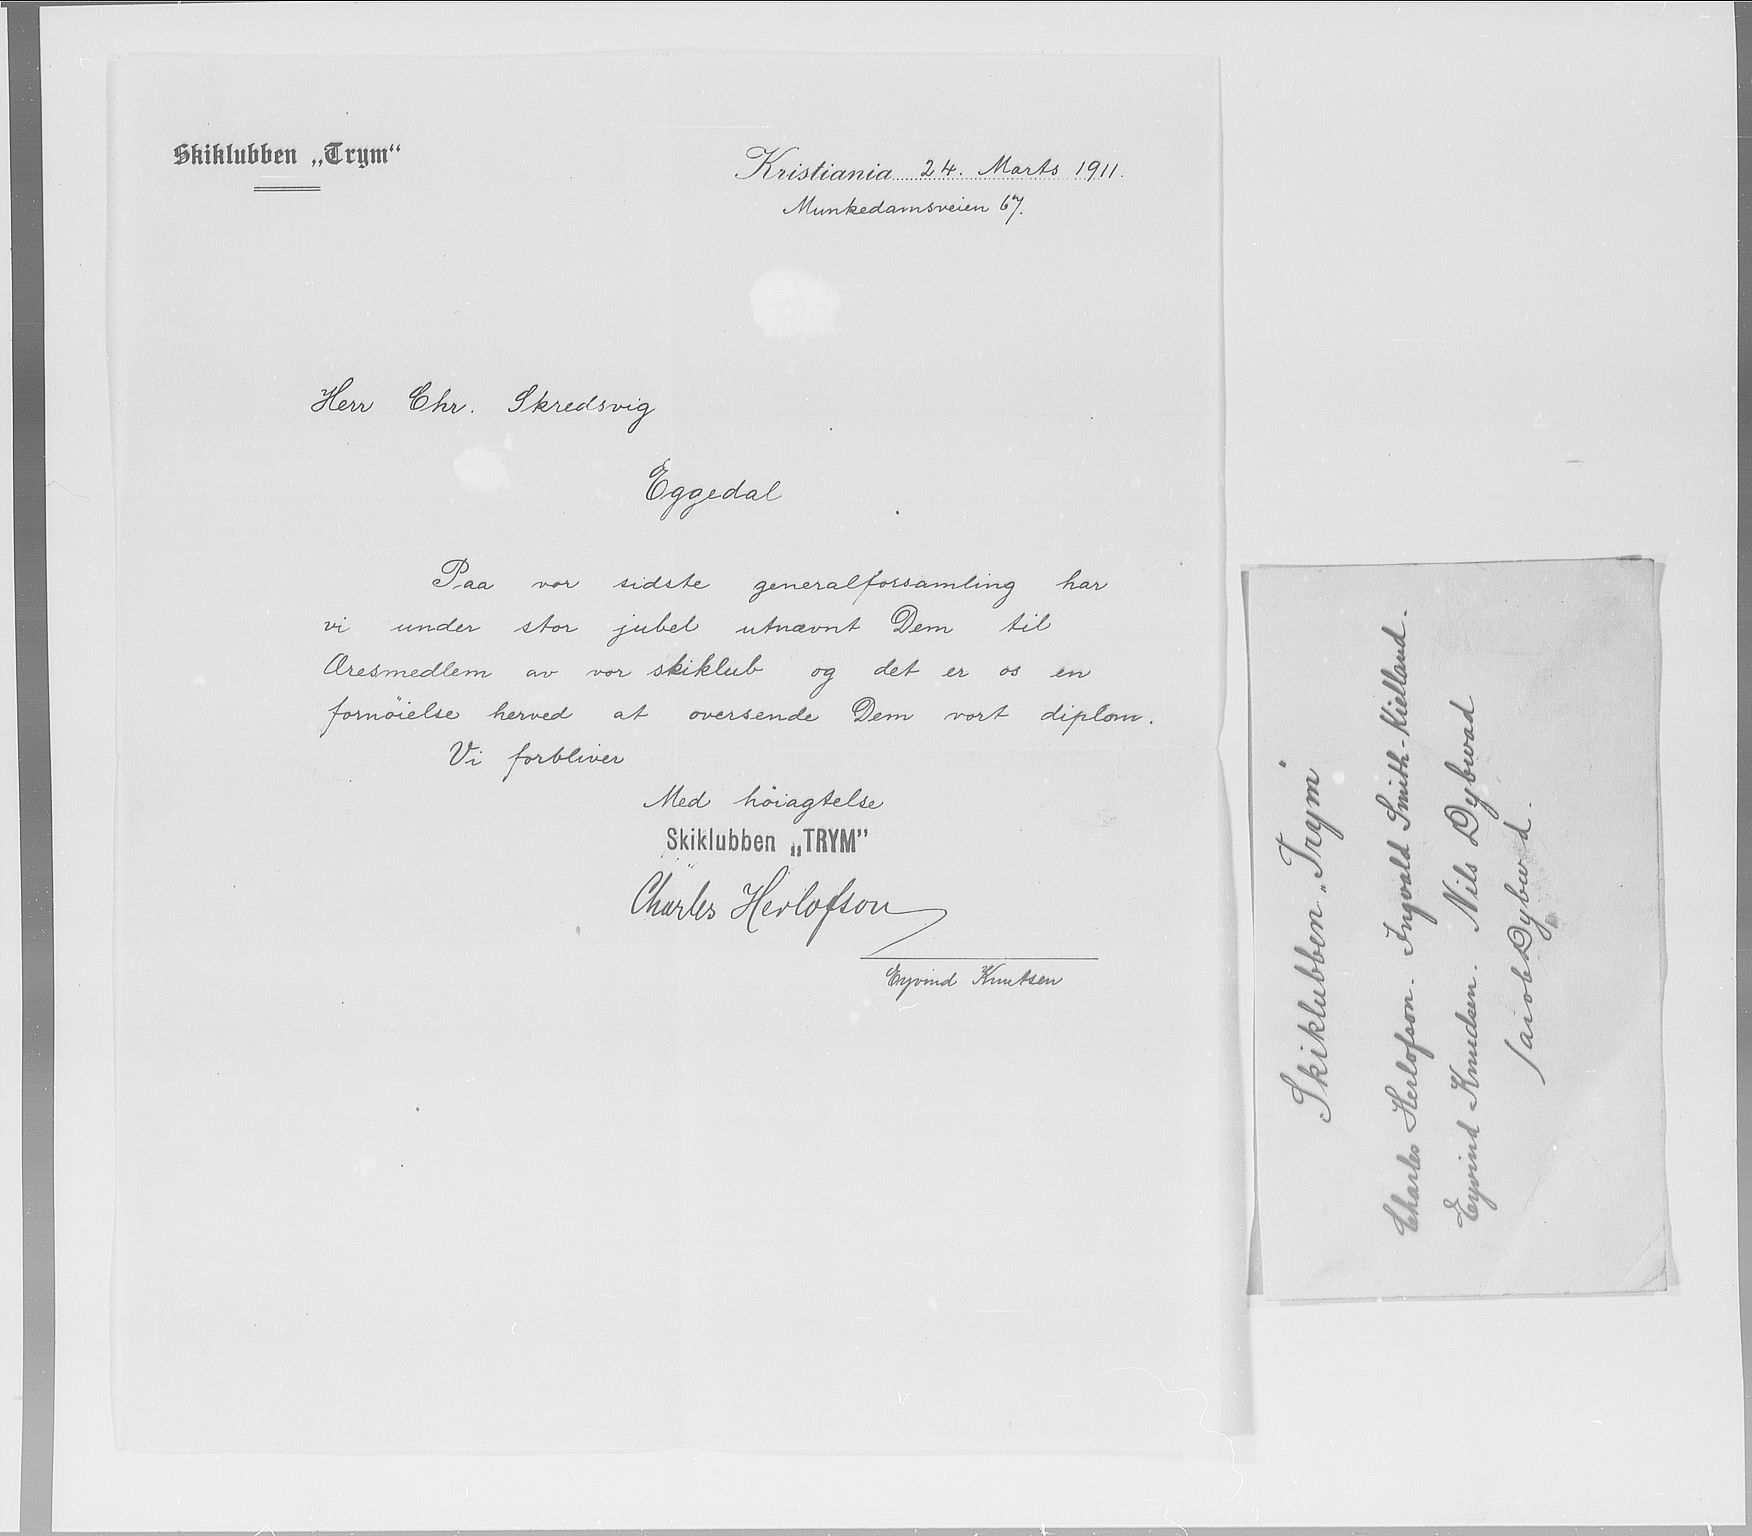 Skiklubben „Trym“
Kristiania 24. Marts 1911.
Munkedamsveien 67.
Herr Chr. Skredsvig
Eggedal
Paa vor sidste generalforsamling har
vi under stor jubel utnævnt Dem til
Æresmedlem av vor skiklub og det er os en
fornöielse herved at oversende Dem vort diplom.
Vi forbliver
Med höiagtelse
Skiklubben „TRYM”
Charles Herlofson
Eyvind Knutsen
Skiklubben „Trym"
Charles Herlofson. Ingvald Smith-Kielland.
Eyvind Knudsen. Nils Dybwad
Jacob Dybwad.